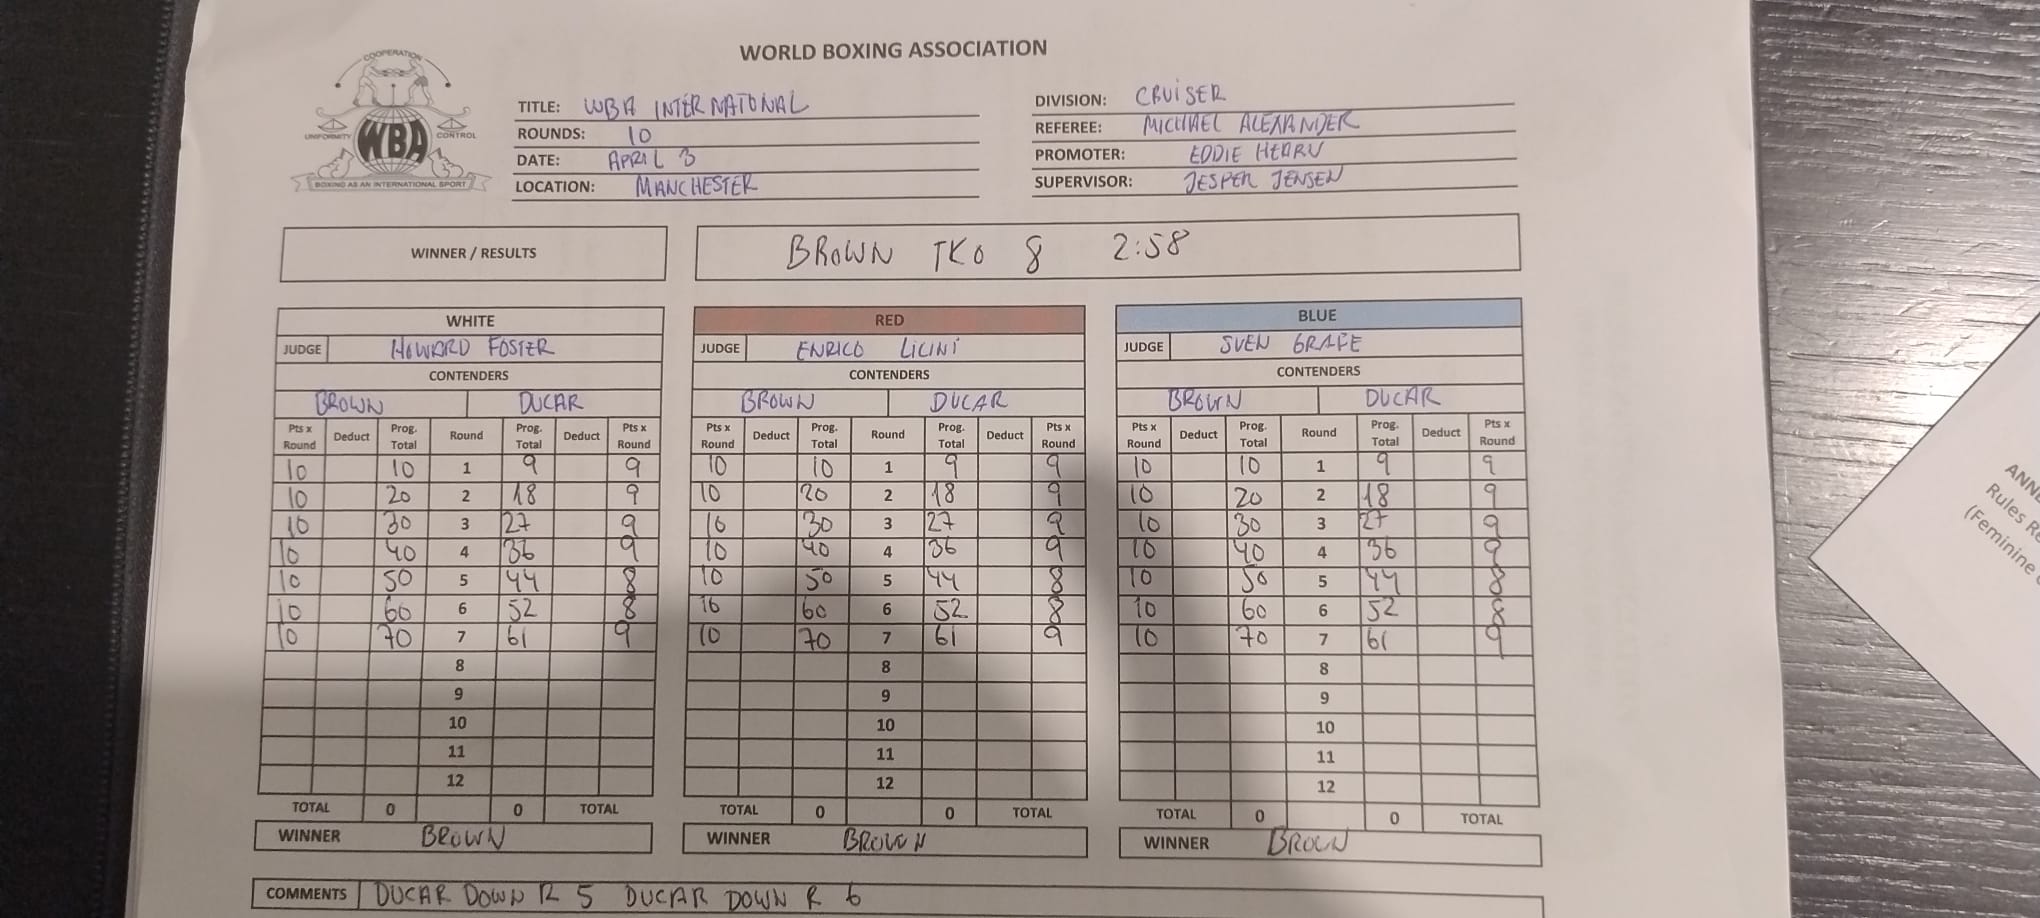 WORLD BOXING ASSOCIATION
COOPERATION
UNIFORMITY WBA CONTROL
BOXING AS AN INTERNATIONAL SPORT
TITLE: WBA INTERNATIONAL
ROUNDS: 10
DATE: APRIL 3
LOCATION: MANCHESTER
DIVISION: CRUISER
REFEREE: MICHAEL ALEXANDER
PROMOTER: EDDIE HEARN
SUPERVISOR: JESPER JENSEN
WINNER / RESULTS BROWN TKO 8 2:58
WHITE
JUDGE HOWARD FOSTER
CONTENDERS
BROWN DUCAR
Pts x Round Deduct Prog. Total Round Prog. Total Deduct Pts x Round
10 10 1 9 9
10 20 2 18 9
10 30 3 27 9
10 40 4 36 9
10 50 5 44 8
10 60 6 52 8
10 70 7 61 9
8
9
10
11
12
TOTAL 0 0 TOTAL
WINNER BROWN
RED
JUDGE ENRICO LICINI
CONTENDERS
BROWN DUCAR
Pts x Round Deduct Prog. Total Round Prog. Total Deduct Pts x Round
10 10 1 9 9
10 20 2 18 9
10 30 3 27 9
10 40 4 36 9
10 50 5 44 8
10 60 6 52 8
10 70 7 61 9
8
9
10
11
12
TOTAL 0 0 TOTAL
WINNER BROWN
BLUE
JUDGE SVEN GRAFE
CONTENDERS
BROWN DUCAR
Pts x Round Deduct Prog. Total Round Prog. Total Deduct Pts x Round
10 10 1 9 9
10 20 2 18 9
10 30 3 27 9
10 40 4 36 9
10 50 5 44 8
10 60 6 52 8
10 70 7 61 9
8
9
10
11
12
TOTAL 0 0 TOTAL
WINNER BROWN
COMMENTS DUCAR DOWN R 5 DUCAR DOWN R 6
Rules
(Feminine